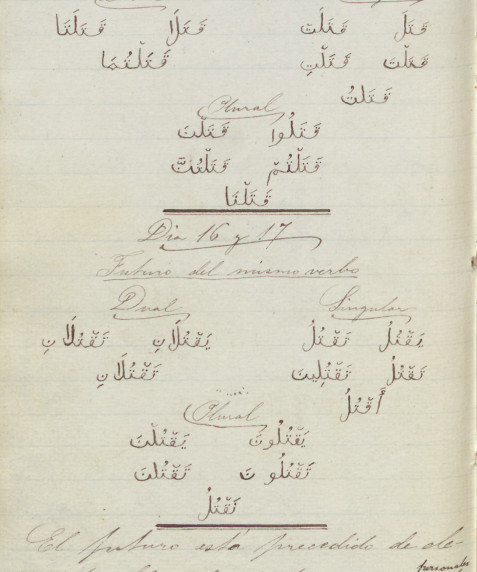 قَتَلَ قَتَلَتْ قَتَلَا قَتَلَتَا
قَتَلْتَ قَتَلْتِ قَتَلْتُمَا
قَتَلْتُ
Plural
قَتَلُوا قَتَلْنَ
قَتَلْتُمْ قَتَلْتُنَّ
قَتَلْنَا
Dia 16 y 17
Futuro del mismo verbo
Singular Dual
يَقْتُلُ تَقْتُلُ يَقْتُلَانِ تَقْتُلَانِ
تَقْتُلُ تَقْتُلِينَ تَقْتُلَانِ
أَقْتُلُ
Plural
يَقْتُلُونَ يَقْتُلْنَ
تَقْتُلُونَ تَقْتُلْنَ
نَقْتُلُ
El futuro está precedido de
personales